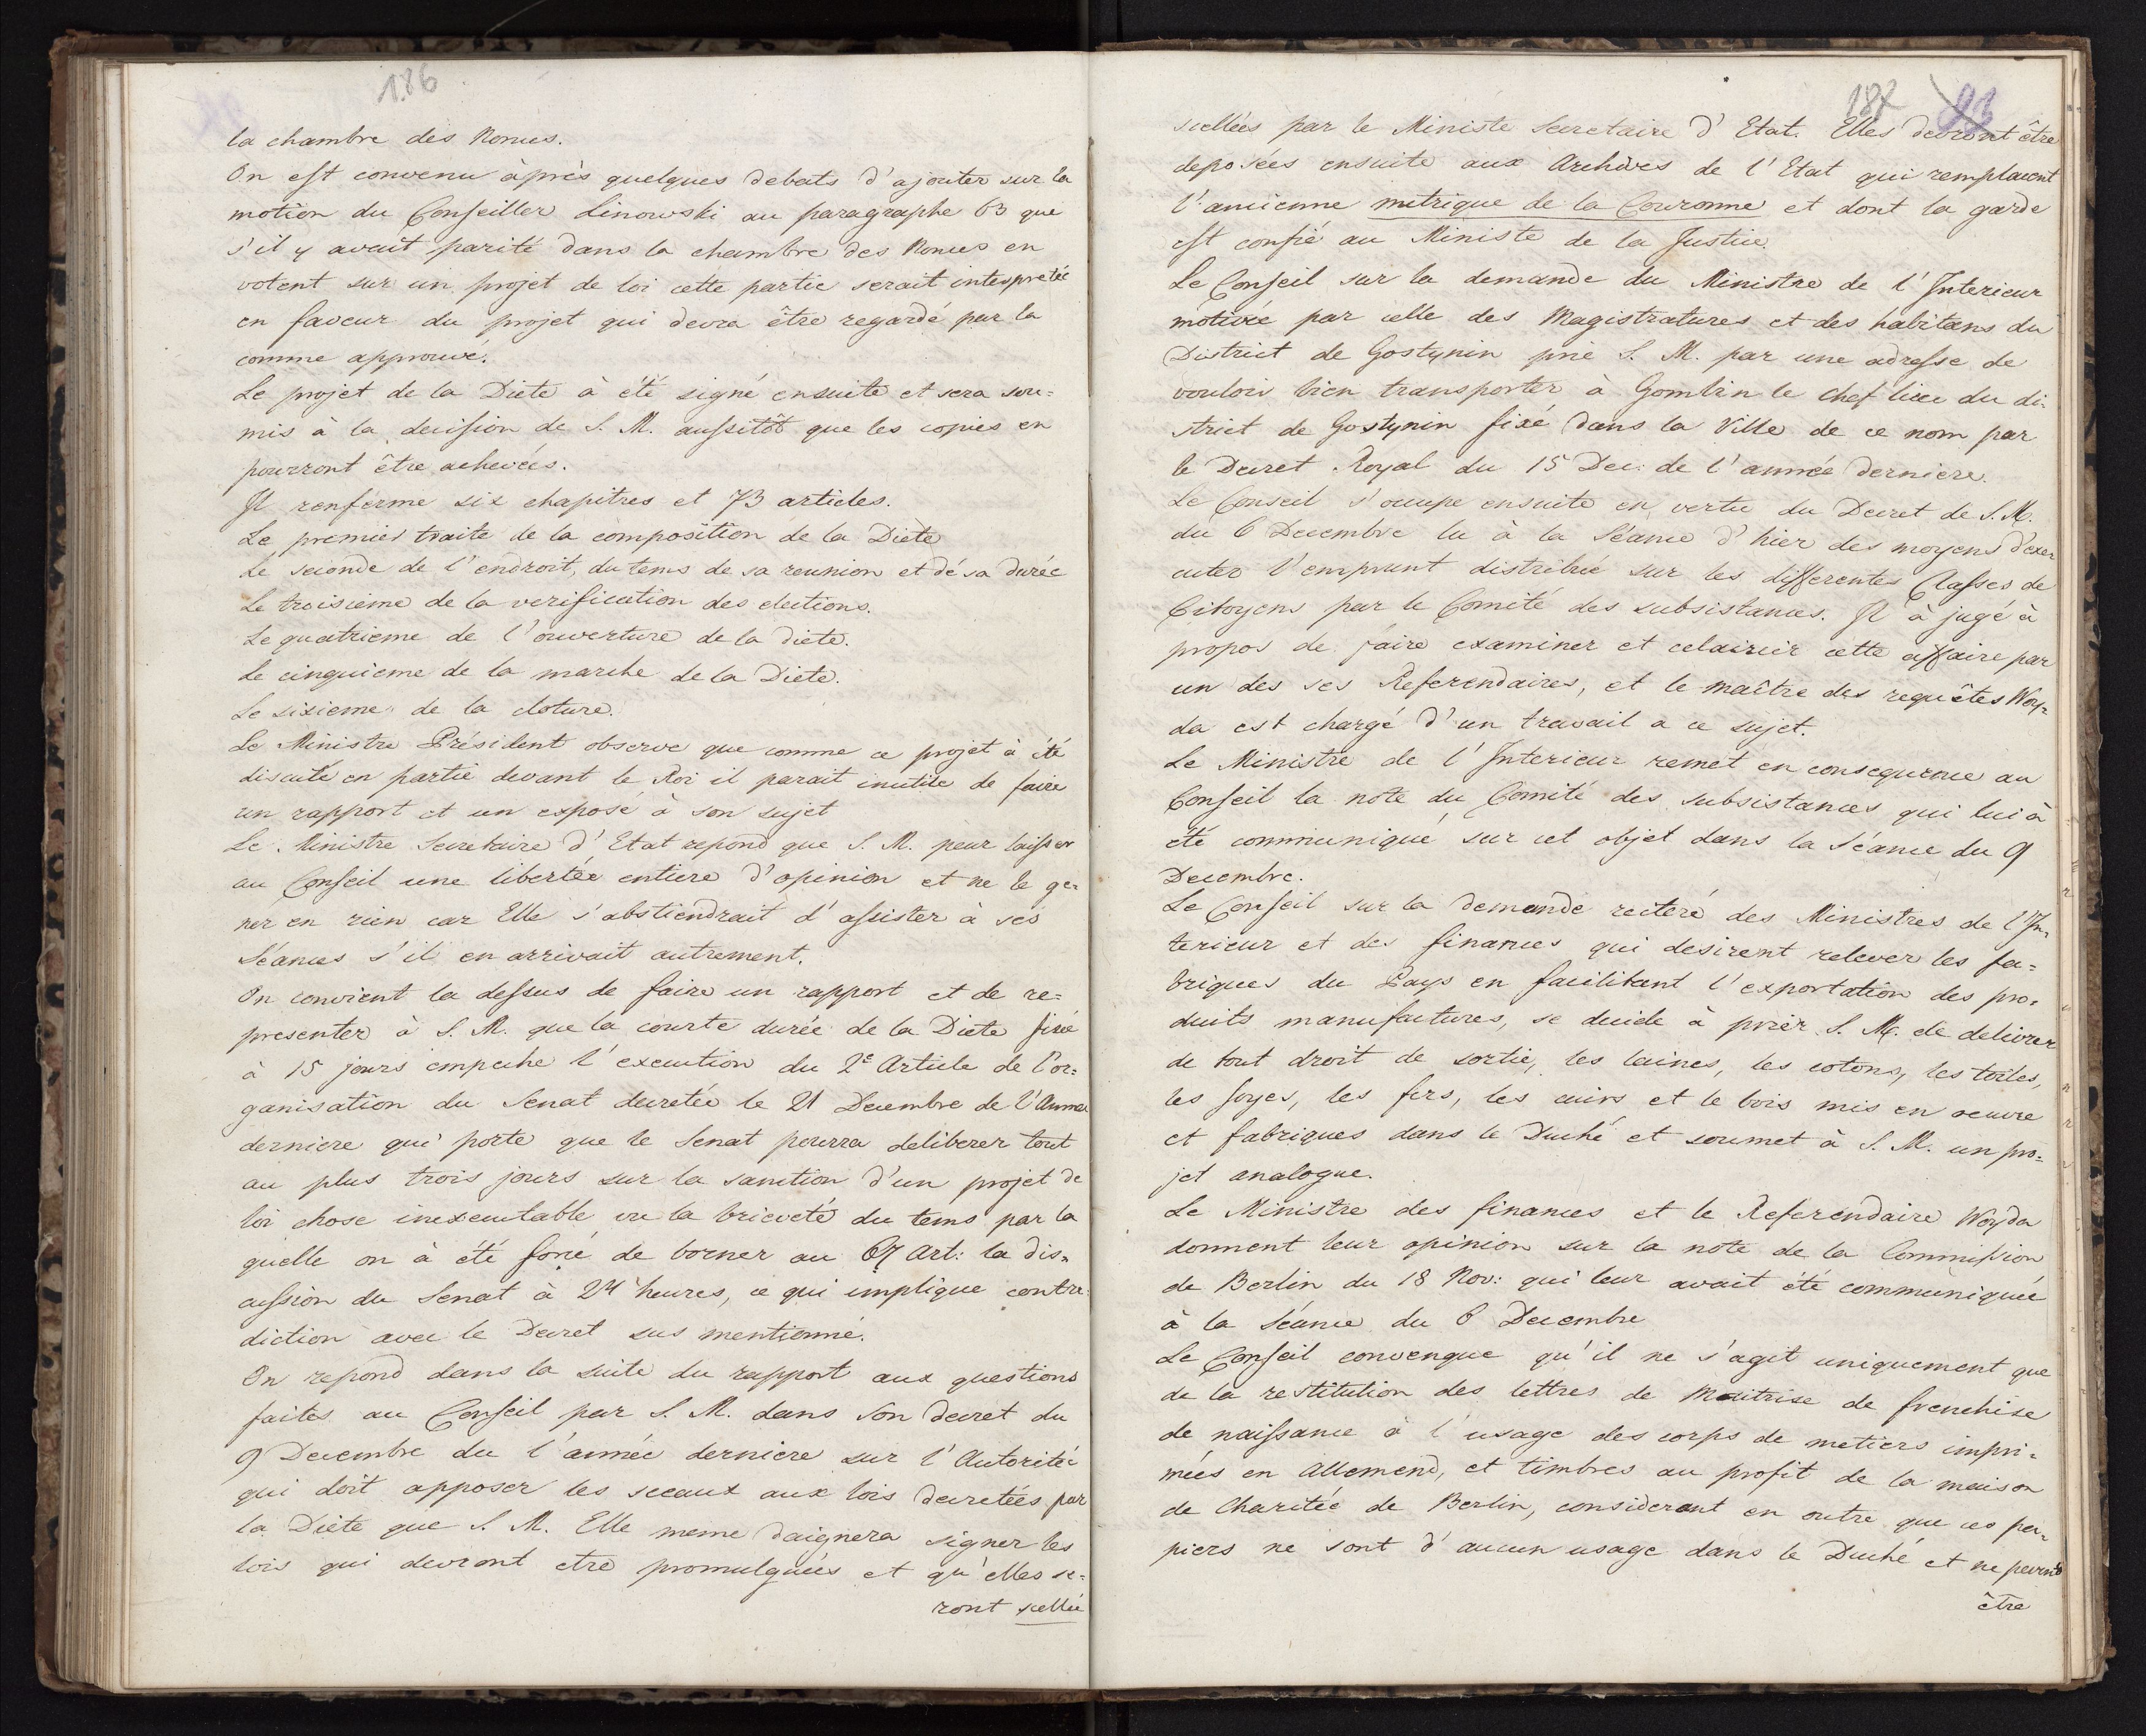 186
la chambre des Nonces.
On est convenu àprès quelques debats d'ajouter sur la
motion du Conseiller Linowski au paragraphe 63 que
s'il y avait parité dans la chambre des Nonces en
votent sur un projet de loi cette partie serait interpretée
en faveur du projet qui devra être regardé par la
comme approuvé.
Le projet de la Diete à été signé ensuite et sera sou=
mis à la decision de S. M. aussitôt que les copies en
pourront être achevées.
Il renferme six chapitres et 73 articles.
Le premier traite de la composition de la Diete
Le seconde de l'endroit, du tems de sa reunion et dé sa durée
Le troisieme de la verification des elections.
Le quatrieme de l'ouverture de la diete.
Le cinquieme de la marche de la Diete.
Le sixieme de la cloture.
Le Ministre Président observe que comme ce projet à été
discuté en partie devant le Roi il parait inutile de faire
un rapport et un exposé à son sujet
Le Ministre Secretaire d'Etat repond que S. M. peur laisser
au Conseil une libertée entiere d'opinion et ne le ge=
ner en rien car Elle s'abstiendrait d'assister à ses
Séances s'il en arrivait autrement.
On convient la dessus de faire un rapport et de re=
presenter à S. M. que la courte durée de la Diete fixé
à 15 jours empeche l'execution du 2e Article de l'or=
ganisation du Senat decretée le 21 Decembre de l'Année
derniere qui porte que le Senat pourra deliberer tout
au plus trois jours sur la sanction d'un projet de
loi chose inexecutable vu la brieveté du tems par la
quelle on à été forcé de borner au 67 Art: la dis=
cussion du Senat à 24 heures, ce qui implique contra=
diction avec le Decret sus mentionné.
On repond dans la suite du rapport aux questions
faites au Conseil par S. M. dans son decret du
9 Decembre du l'année derniere sur l'Autorité
qui doit apposer les sceaux aux lois decretées par
la Diète que S. M. Elle meme daignera signer les
lois qui devront etre promulguées et qu'elles se=
ront scellée
187
scellées par le Ministe Secretaire d'Etat. Elles devront être
deposées ensuite aux Archives de l'Etat qui remplacent
l'ancienne metrique de la Couronne et dont la garde
est confié au Ministe de la Justice
Le Conseil sur la demande du Ministre de l'Interieur
motivée par celle des Magistratures et des habitans du
District de Gostynin prie S. M. par une adresse de
vouloir bien transporter à Gombin le chef lieu du di=
strict de Gostynin fixé dans la Ville de ce nom par
le Decret Royal du 15 Dec: de l'année derniere.
Le Conseil s'occupe ensuite en vertu du Decret de S. M.
du 6 Decembre lu à la Séance d'hier des moyens d'exe=
cuter l'emprunt distribué sur les differentes Classes de
Citoyens par le Comité des subsistances. Il à jugé à
propos de faire examiner et eclaircir cette affaire par
un des ses Referendaires, et le maître des requêtes Woy=
da est chargé d'un travail a ce sujet.
Le Ministre de l'Interieur remet en consequence au
Conseil la note du Comité des subsistances qui lui à
été communiqué sur cet objet dans la Séance du 9
Decembre.
Le Conseil sur la demande reiteré des Ministres de l'In=
terieur et des finances qui desirent relever les fa=
briques du Pays en facilitant l'exportation des pro=
duits manufactures, se decide à prièr S. M. de delivrer
de tout droit de sortie, les laines, les cotons, les toiles,
les soyes, les fers, les cuirs et le bois mis en oeuvre
et fabriques dans le Duché et soumet à S. M. un pro=
jet analogue.
Le Ministre des finances et le Referendaire Woyda
donnent leur opinion sur la note de la Commission
de Berlin du 18 Nov: qui leur avait été communiquée
à la Séance du 6 Decembre
Le Conseil convengue qu'il ne s'agit uniquement que
de la restitution des lettres de Maitrise de frenchise
de naissance à l'usage des corps de metiers impri=
mées en Allemend, et timbres au profit de la maison
de Charitée de Berlin, considerant en outre que ces pa=
piers ne sont d'aucun usage dans le Duché et ne peuvent
être